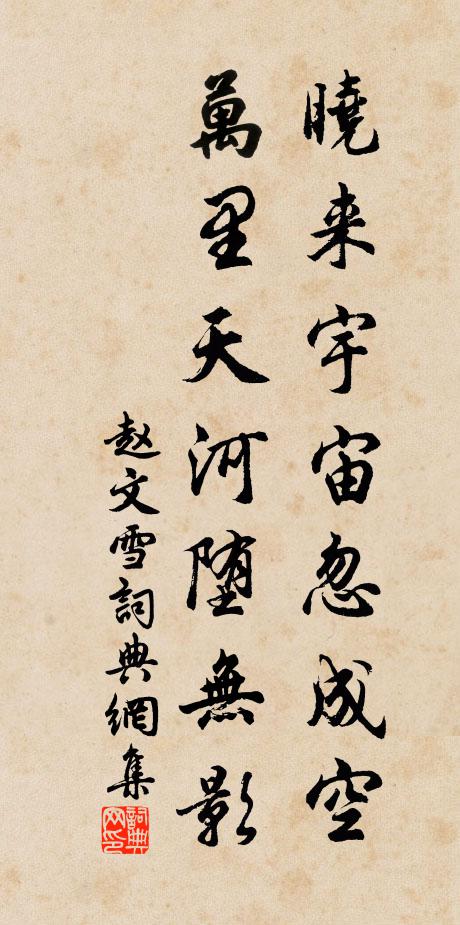 曉来宇宙忽成空
萬里天河堕無影
赵文雪詞典網集
詞典网印